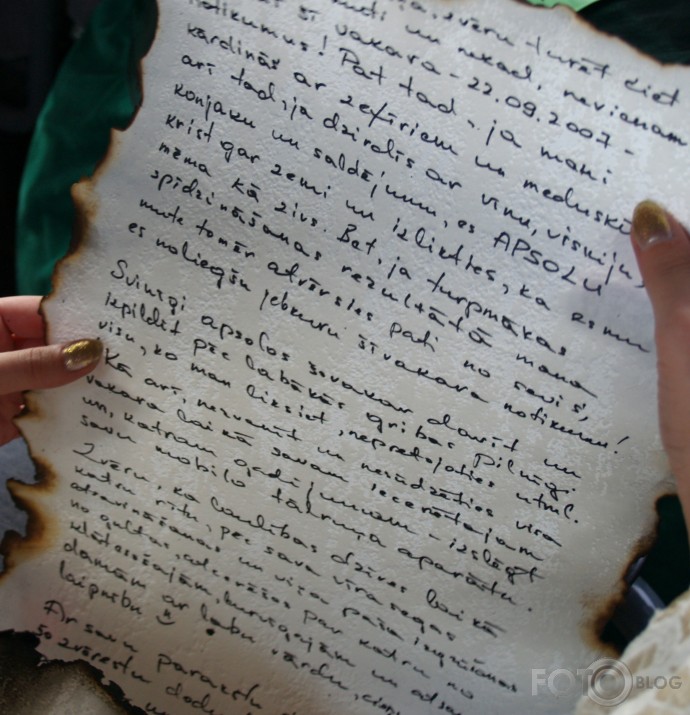 zvēru turēt ciet
muti un nekad, nevienam
šī vakara - 22.09.2007 -
notikumus! Pat tad, ja mani
kārdinās ar zefīriem un medusk
arī tad, ja dzirdīs ar vīnu, viskiju,
konjaku un saldējumu, es APSOLU
krist gar zemi un izlikties, ka esmu
mēma kā zivs. Bet, ja turpmākas
spīdzināšanas rezultātā mana
mute tomēr atvērsies pati no sevis,
es noliegšu jebkuru šī vakara notikumu!
Svinīgi apsolos šovakar darīt un
izpildīt pēc labākās gribas pilnīgi
visu, ko man liksiet, nepretojoties utml.
Kā arī, nezvanīt un nesūdzēties vīra
vakara laikā savam iecerētajam
un, katram gadījumam - izslēgt
savu mobilo tālruņa aparātu.
Zvēru, ka laulības dzīves laikā
katru rītu, pēc sava vīra segas
atsvaidzināšanas un viņa paša izcelšanas
no gultas, atcerēšos par katru no
klātesošajām, burvīgajām un
dāmām ar labu vārdu,
laipnību
Ar savu parakstu
šo zvērestu dodu
FOTOBLOG